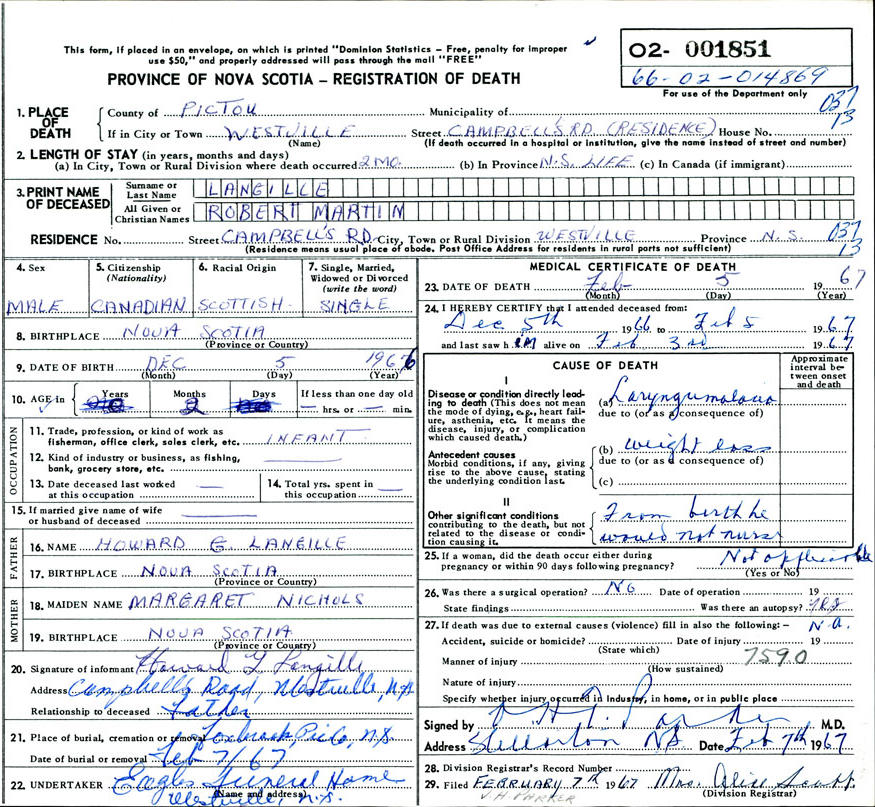 This form, if placed in an envelope, on which is printed "Dominion Statistics – Free, penalty for improper
use $50," and properly addressed will pass through the mail "FREE"
PROVINCE OF NOVA SCOTIA – REGISTRATION OF DEATH
02- 001851
66-02-014869
For use of the Department only
037
13
1. PLACE OF DEATH
County of PICTOU Municipality of
If in City or Town WESTVILLE Street CAMPBELL'S RD (RESIDENCE) House No.
(Name) (If death occurred in a hospital or institution, give the name instead of street and number)
2. LENGTH OF STAY (in years, months and days)
(a) In City, Town or Rural Division where death occurred 2 MO. (b) In Province N.S. LIFE (c) In Canada (if immigrant)
3. PRINT NAME OF DECEASED
Surname or Last Name LANGILLE
All Given or Christian Names ROBERT MARTIN
RESIDENCE No. Street CAMPBELL'S RD City, Town or Rural Division WESTVILLE Province N.S.
037
13
(Residence means usual place of abode. Post Office Address for residents in rural parts not sufficient)
4. Sex
MALE
5. Citizenship (Nationality)
CANADIAN
6. Racial Origin
SCOTTISH
7. Single, Married, Widowed or Divorced (write the word)
SINGLE
8. BIRTHPLACE NOVA SCOTIA
(Province or Country)
9. DATE OF BIRTH DEC 5 1966
(Month) (Day) (Year)
10. AGE in Years Months Days If less than one day old
2 hrs. or min.
OCCUPATION
11. Trade, profession, or kind of work as fisherman, office clerk, sales clerk, etc. INFANT
12. Kind of industry or business, as fishing, bank, grocery store, etc.
13. Date deceased last worked at this occupation
14. Total yrs. spent in this occupation
15. If married give name of wife or husband of deceased
FATHER
16. NAME HOWARD G. LANGILLE
17. BIRTHPLACE NOVA SCOTIA
(Province or Country)
MOTHER
18. MAIDEN NAME MARGARET NICHOLS
19. BIRTHPLACE NOVA SCOTIA
(Province or Country)
20. Signature of informant Howard G Langille
Address Campbell's Road, Westville, N.S.
Relationship to deceased Father
21. Place of burial, cremation or removal Loxbrook, Pic Co, N.S.
Date of burial or removal Feb 7/67
22. UNDERTAKER Eagles Funeral Home
(Name and address) Westville, N.S.
MEDICAL CERTIFICATE OF DEATH
23. DATE OF DEATH Feb 5 1967
(Month) (Day) (Year)
24. I HEREBY CERTIFY that I attended deceased from:
Dec 5th 1966 to Feb 5 1967
and last saw him alive on Feb 3rd 1967
CAUSE OF DEATH
Approximate interval between onset and death
I
Disease or condition directly leading to death (This does not mean the mode of dying, e.g., heart failure, asthenia, etc. It means the disease, injury, or complication which caused death.)
(a) Laryngomalacia
due to (or as a consequence of)
Antecedent causes
Morbid conditions, if any, giving rise to the above cause, stating the underlying condition last.
(b) weight loss
due to (or as a consequence of)
(c)
II
Other significant conditions
contributing to the death, but not related to the disease or condition causing it.
From birth he
would not nurse
25. If a woman, did the death occur either during pregnancy or within 90 days following pregnancy? Not applicable
(Yes or No)
26. Was there a surgical operation? No Date of operation 19
State findings Was there an autopsy? yes
27. If death was due to external causes (violence) fill in also the following:– N.A.
Accident, suicide or homicide? Date of injury 19
(State which)
Manner of injury 7590
(How sustained)
Nature of injury
Specify whether injury occurred in Industry, in home, or in public place
Signed by M.D.
Address Stellarton NS Date Feb 7th 1967
28. Division Registrar's Record Number
29. Filed FEBRUARY 7th 1967 Mrs. Alice Scott
(Division Registrar)
V.H. PARKER